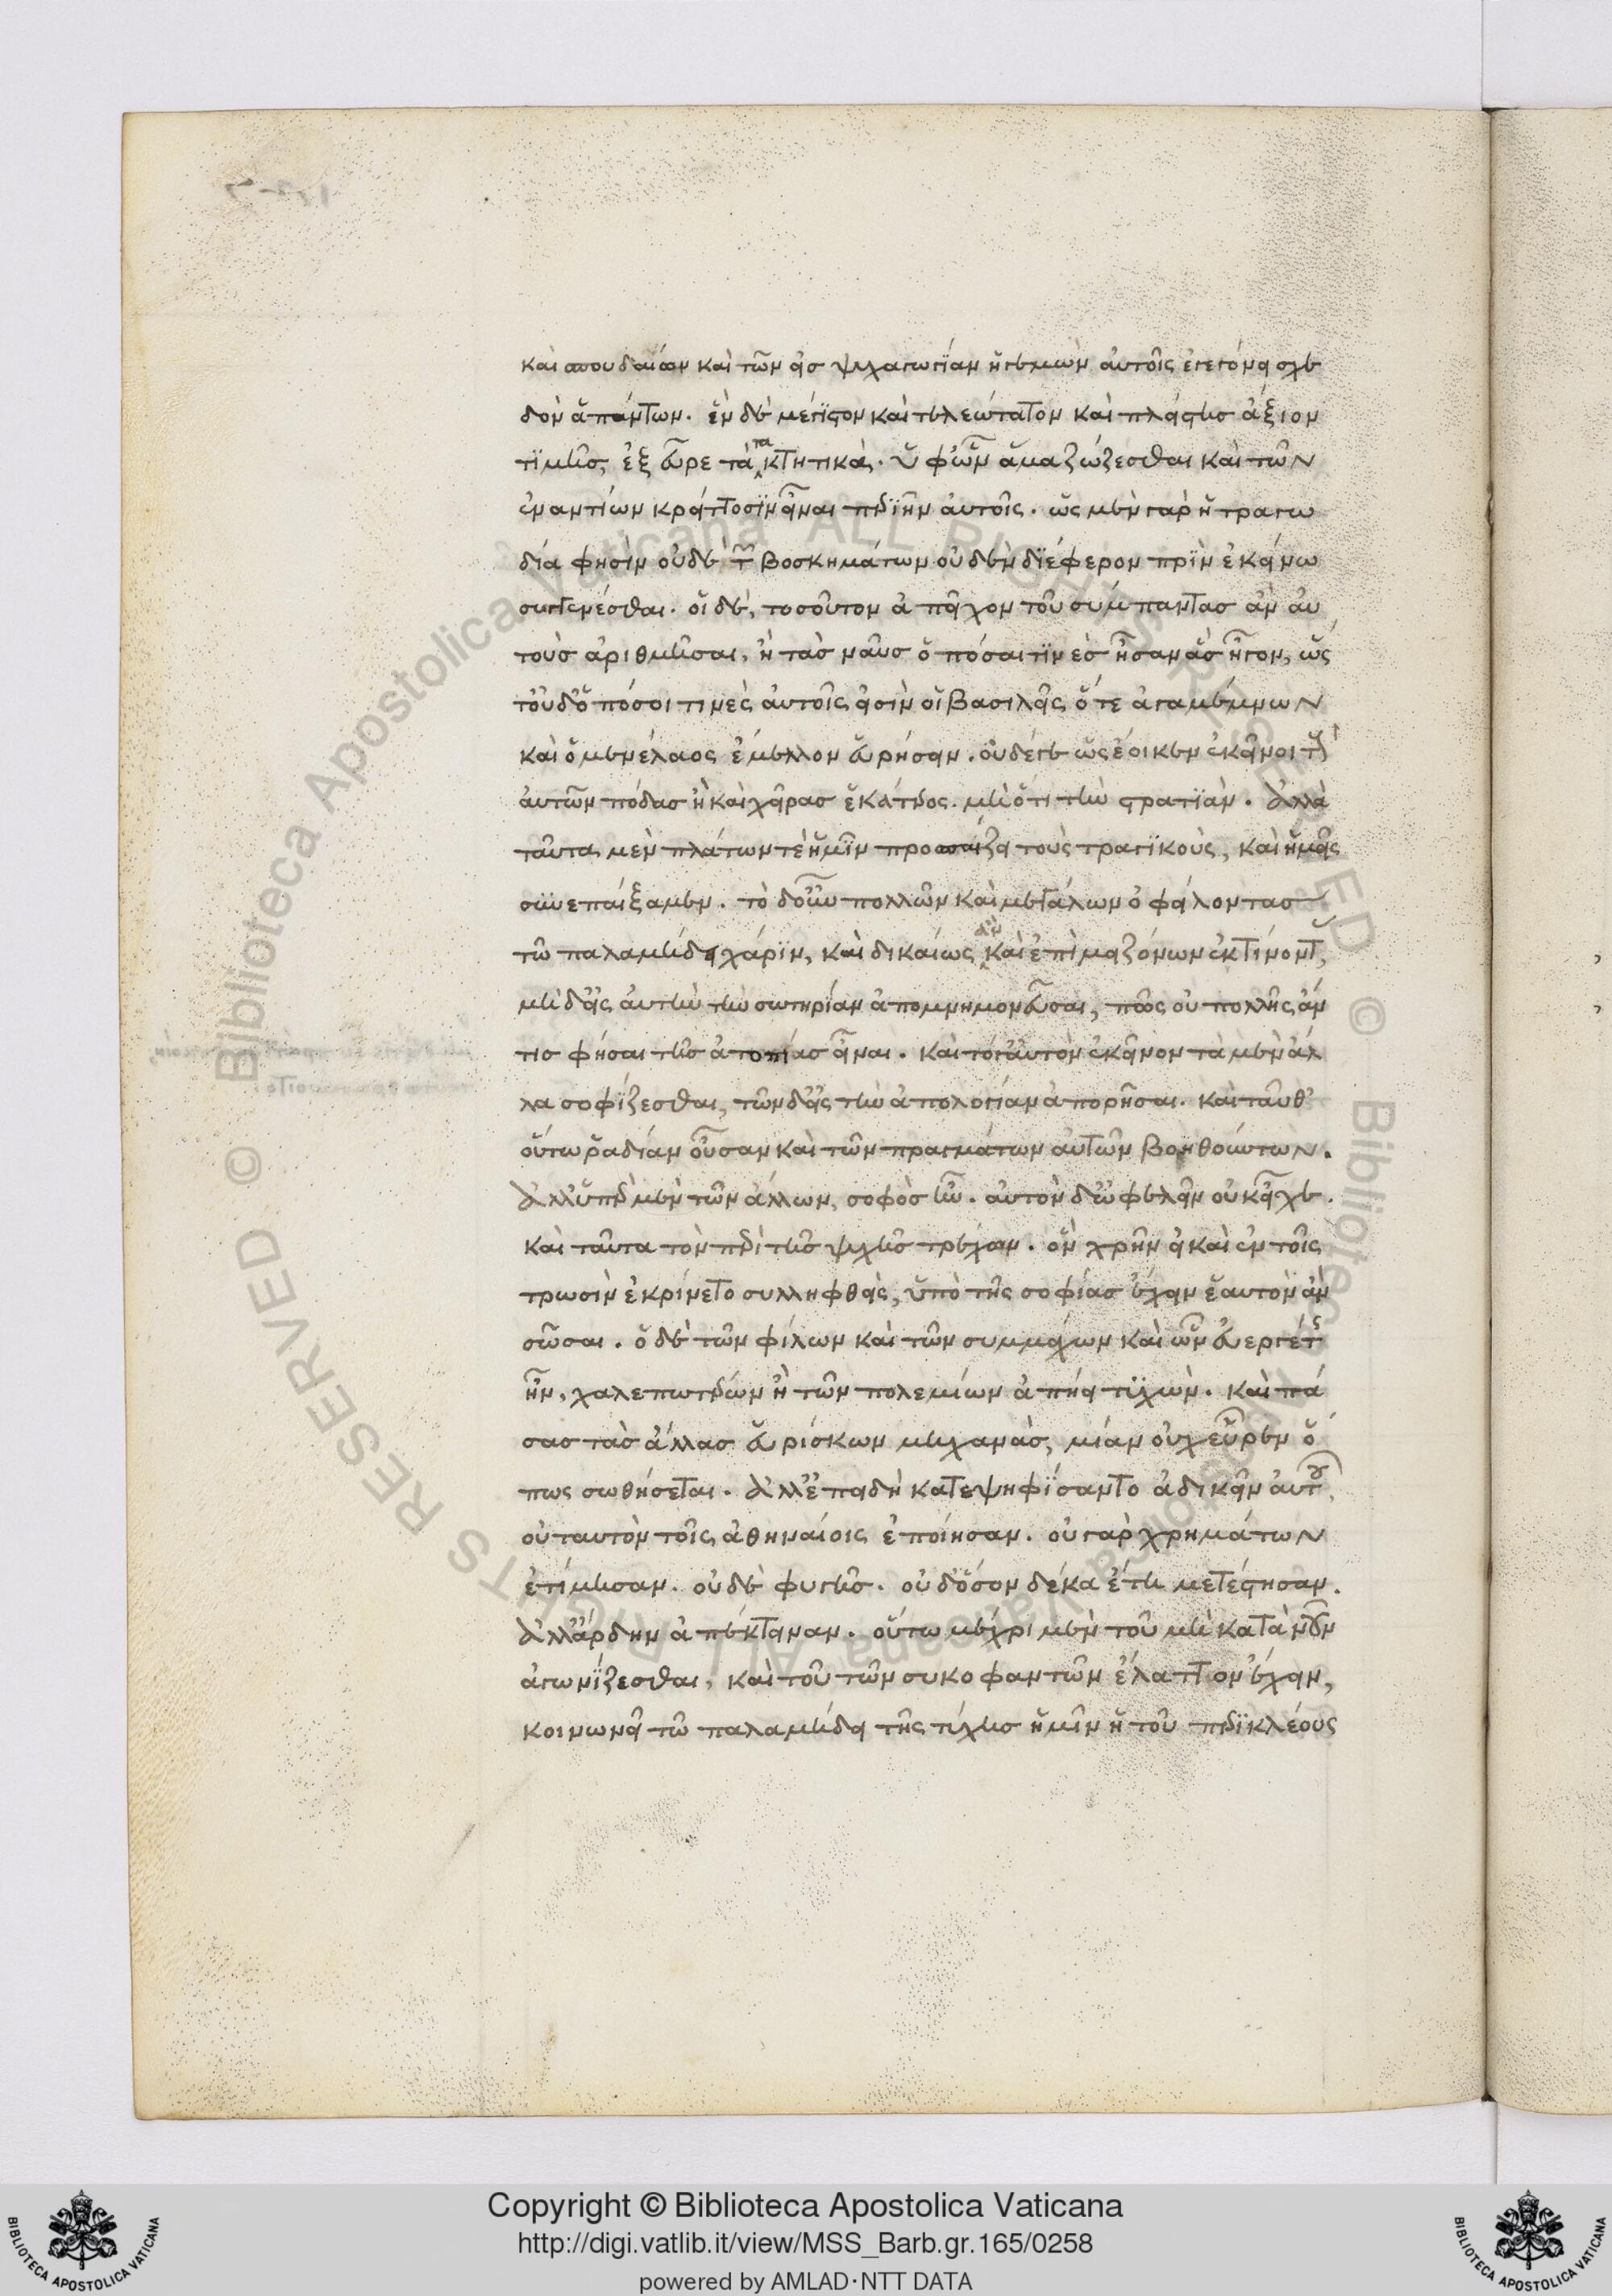 καὶ σπουδαίων καὶ τῶν εἰς ψυχαγωγίαν ἡγεμὼν αὐτοῖς ἐγεγόνει σχε
δὸν ἁπάντων. ἓν δὲ μέγιστον καὶ τελεώτατον καὶ πλείστης ἄξιον
τιμῆς, ἐξεῦρε τὰ τακτικά. ὑφ' ὧν ἅμα σώζεσθαι καὶ τῶν
ἐναντίων κρείττοσιν εἶναι περιῆν αὐτοῖς. ὡς μὲν γὰρ ἡ τραγω
δία φησὶν οὐδὲ τῶν βοσκημάτων οὐδὲν διέφερον πρὶν ἐκείνω
συγγενέσθαι. οἱ δὲ, τοσοῦτον ἀπεῖχον τοῦ σύμπαντας ἂν αὐ
τοὺς ἀριθμῆσαι, ἢ τὰς ναῦς ὁπόσαι τινὲς ἦσαν ἃς ἦγον, ὥς
τ' οὐδ' ὁπόσοι τινὲς αὐτοῖς εἰσὶν οἱ βασιλεῖς ὅ τε ἀγαμέμνων
καὶ ὁ μενέλαος ἔμελλον εὑρήσειν. οὐδέ γε ὡς ἔοικεν ἐκεῖνοι τοὺς
αὑτῶν πόδας ἢ καὶ χεῖρας ἑκάτερος. μὴ ὅτι τὴν στρατιάν. Ἀλλὰ
ταῦτα μὲν πλάτων τὲ ἡμῖν προσπαίζει τοὺς τραγικοὺς, καὶ ἡμεῖς
συνεπαίξαμεν. τὸ δ' οὖν πολλῶν καὶ μεγάλων ὀφείλοντας
τῶ παλαμήδει χάριν, καὶ δικαίως ἂν καὶ ἐπὶ μειζόνων ἐκτίνοντας,
μηδ' εἰς αὐτὴν τὴν σωτηρίαν ἀπομνημονεῦσαι, πῶς οὐ πολλῆς ἄν
τις φήσαι τῆς ἀτοπίας εἶναι. καὶ τό γ' αὐτὸν ἐκεῖνον τὰ μὲν ἄλ
λα σοφίζεσθαι, τῶν δ' εἰς τὴν ἀπολογίαν ἀπορῆσαι. καὶ ταῦθ'
οὕτω ῥαδίαν οὖσαν καὶ τῶν πραγμάτων αὐτῶν βοηθούντων.
Ἀλλ' ὑπὲρ μὲν τῶν ἄλλων, σοφὸς ἦν. αὑτὸν δ' ὠφελεῖν οὐκ εἶχε.
καὶ ταῦτα τὸν περὶ τῆς ψυχῆς τρέχων. ὃν χρῆν εἰ καὶ ἐν τοῖς
τρωσὶν ἐκρίνετο συλληφθεὶς, ὑπὸ τῆς σοφίας ἔχειν ἑαυτὸν ἂν
σῶσαι. ὁ δὲ τῶν φίλων καὶ τῶν συμμάχων καὶ ὧν εὐεργέτης
ἦν, χαλεπωτέρων ἢ τῶν πολεμίων ἀπήει τυχών. καὶ πά
σας τὰς ἄλλας εὑρίσκων μηχανὰς, μίαν οὐχ εὗρεν ὅ
πως σωθήσεται. Ἀλλ' ἐπειδὴ κατεψηφίσαντο ἀδικεῖν αὐτοῦ,
οὐ ταυτὸν τοῖς ἀθηναίοις ἐποίησαν. οὐ γὰρ χρημάτων
ἐτίμησαν. οὐδὲ φυγῆς. οὐδ' ὅσον δέκα ἔτη μετέστησαν.
Ἀλλ' ἄρδην ἀπέκτειναν. οὕτω μέχρι μὲν τοῦ μὴ κατὰ νοῦν
ἀγωνίζεσθαι, καὶ τοῦ τῶν συκοφαντῶν ἔλαττον ἔχειν,
κοινωνεῖ τῶ παλαμήδει τῆς τύχης ἡμῖν ἡ τοῦ περικλέους
Copyright © Biblioteca Apostolica Vaticana
http://digi.vatlib.it/view/MSS_Barb.gr.165/0258
powered by AMLAD·NTT DATA